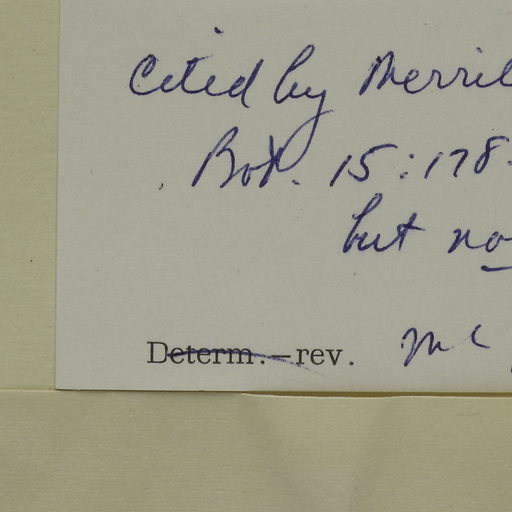 Cited by Merril
Bot. 15:178.
but no
Determ.—rev. Mc